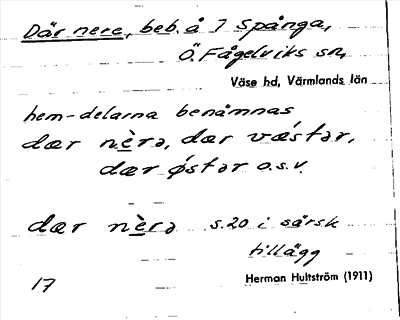 Där nere, beb. å 7 Spånga,
Ö. Fågelviks sn,
Väse hd, Värmlands län
hem-delarna benämnas
dær nèrə, dær vǽstər,
dær ǿstər o.s.v.
dær nèrə s. 20 i särsk
tillägg
17
Herman Hultström (1911)